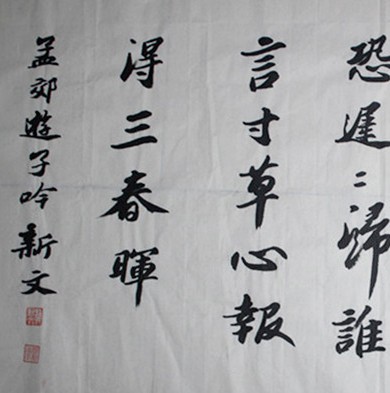 恐遲〻歸誰
言寸草心報
得三春暉
孟郊遊子吟 新文